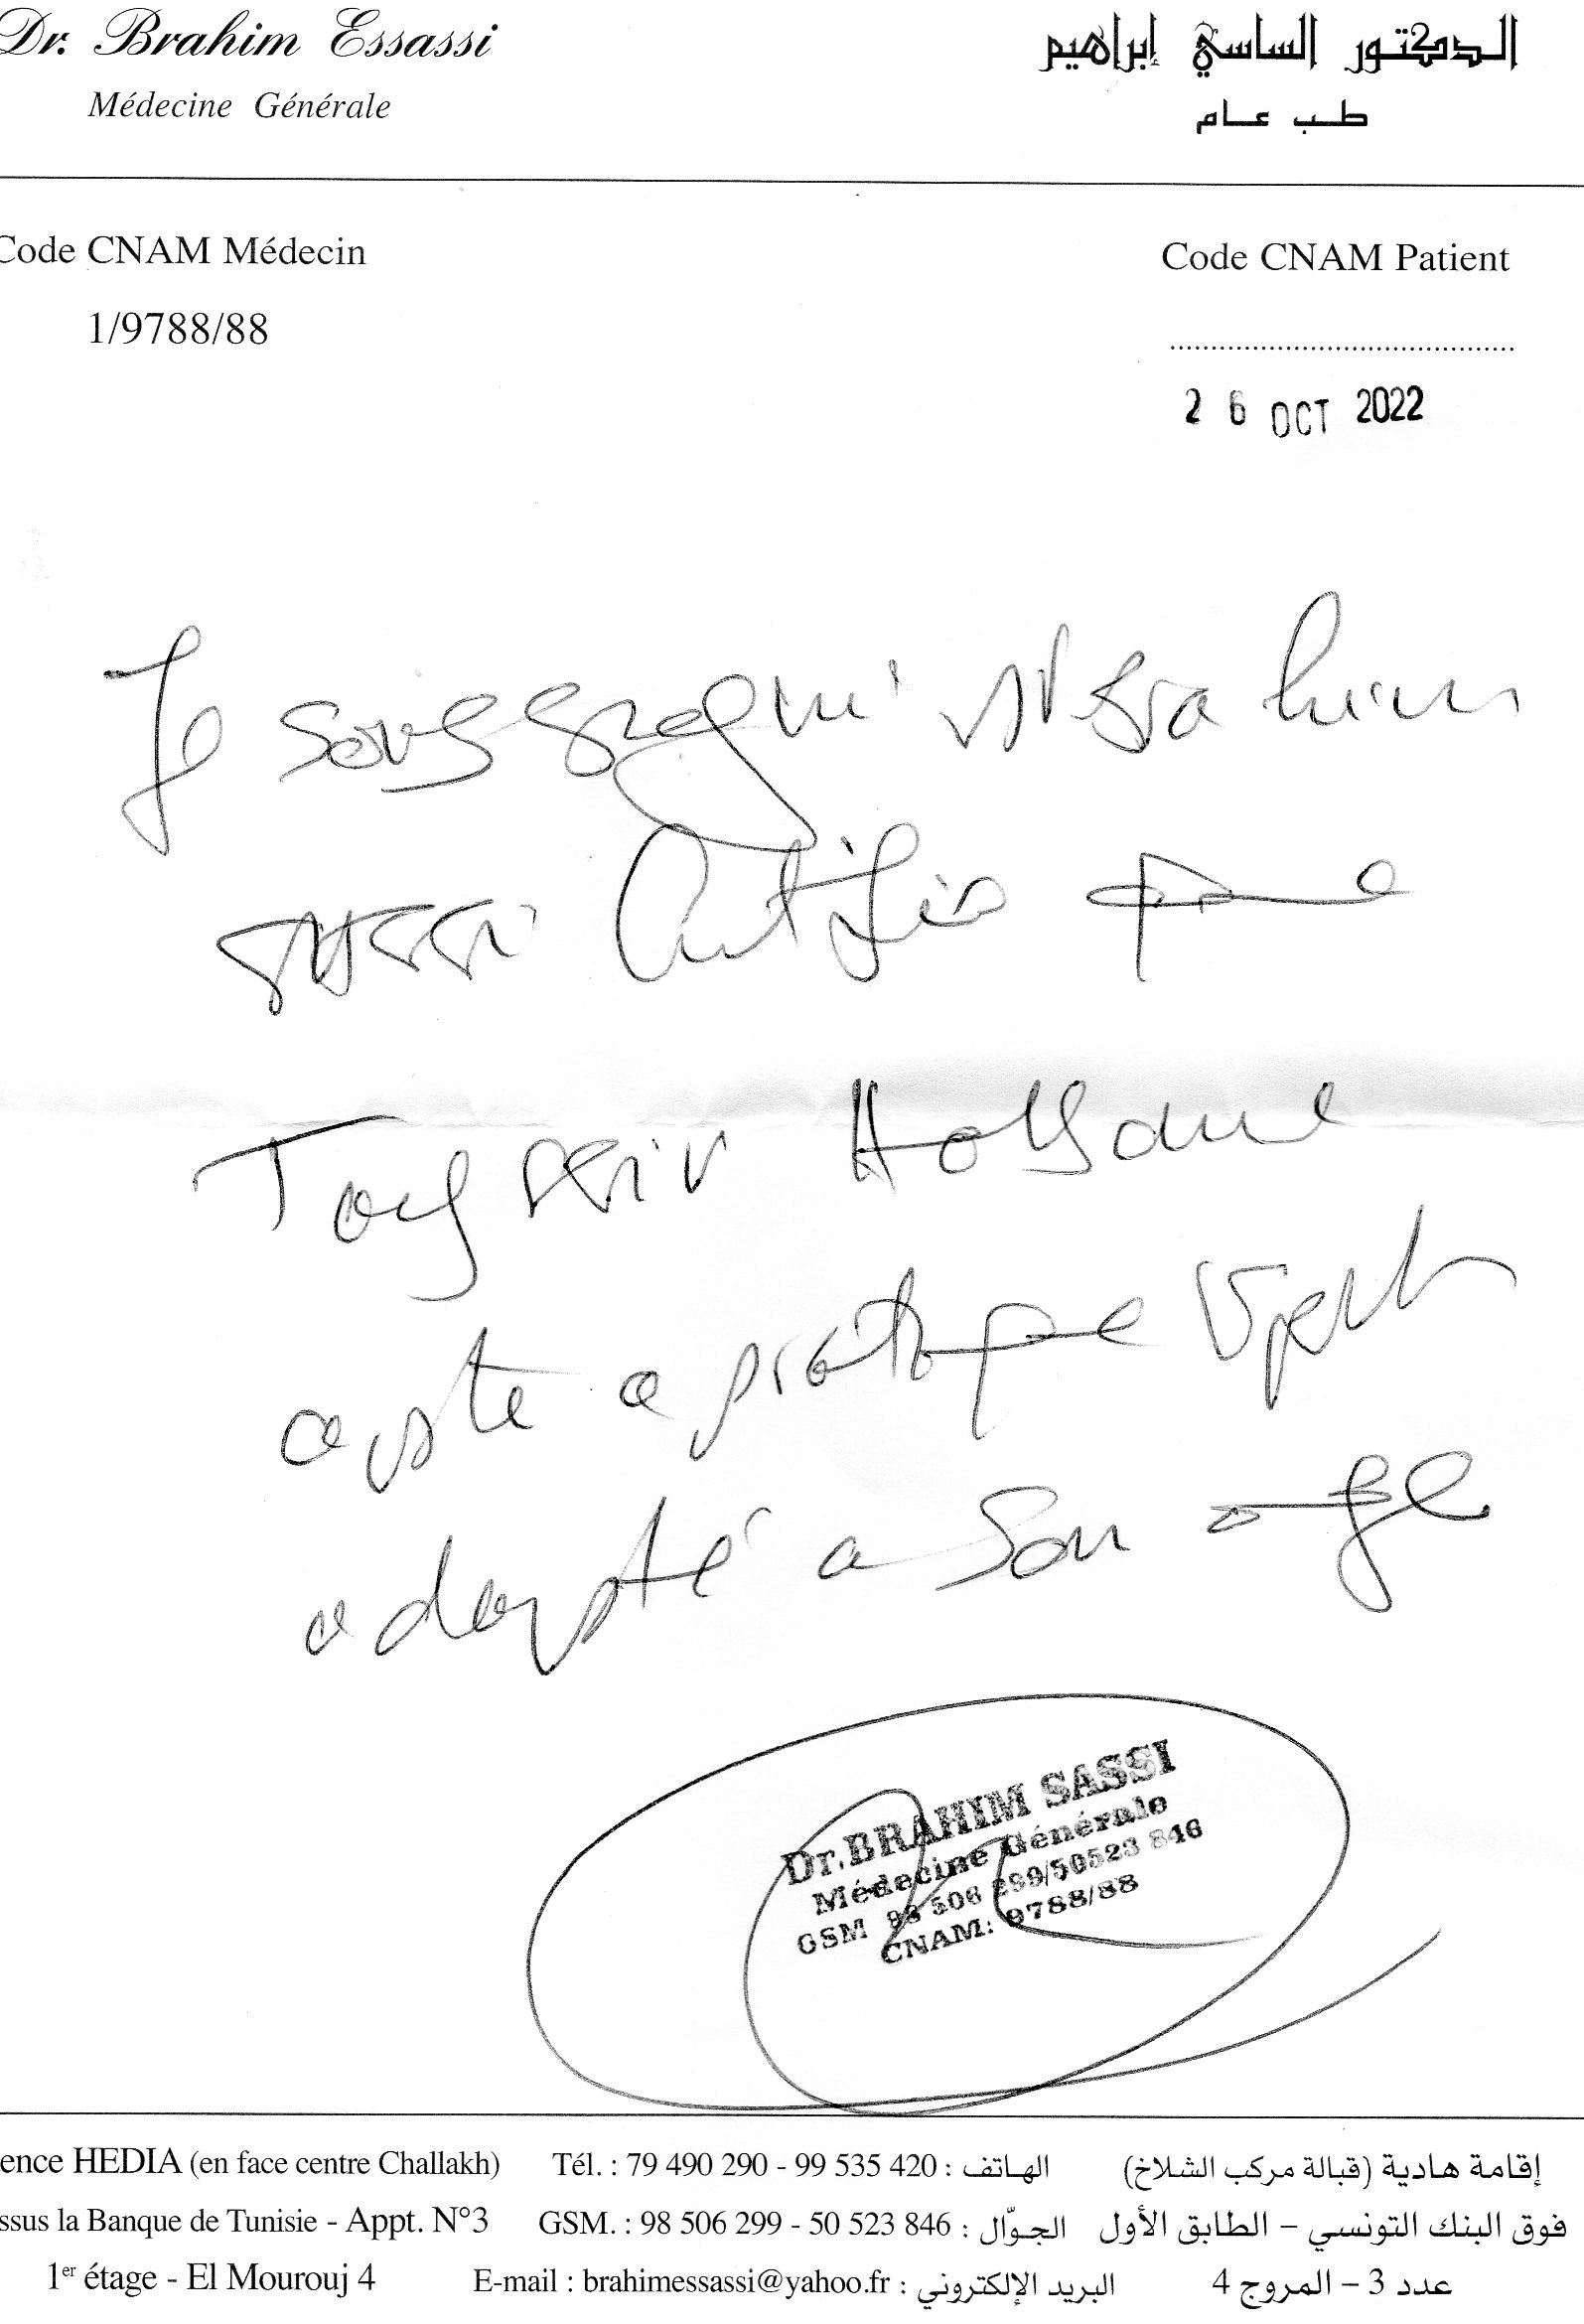 Dr. Brahim Essassi
الدكتور الساسي إبراهيم
Médecine Générale
طب عام
Code CNAM Médecin
Code CNAM Patient
1/9788/88
26 OCT 2022
Je soussigné Dr Brahim
Sassi certifie que
apte a pratique sport
adapté a son age
Dr. BRAHIM SASSI
Médecine Générale
GSM 98 506 299/50523 846
CNAM: 9788/88
ence HEDIA (en face centre Challakh)
Tél. : 79 490 290 - 99 535 420 : الهاتف
إقامة هادية (قبالة مركب الشلاخ)
ssus la Banque de Tunisie - Appt. N°3
GSM. : 98 506 299 - 50 523 846 : الجوّال
فوق البنك التونسي – الطابق الأول
1er étage - El Mourouj 4
E-mail : brahimessassi@yahoo.fr : البريد الإلكتروني
عدد 3 – المروج 4